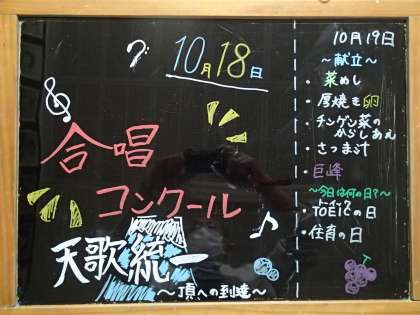 10月18日
合唱
コンクール
天歌統一
～頂への到達～
10月19日
～献立～
・菜めし
・厚焼き卵
・チンゲン菜の
からしあえ
・さつま汁
・巨峰
～今日は何の日？～
・TOEICの日
トーイック
・住育の日